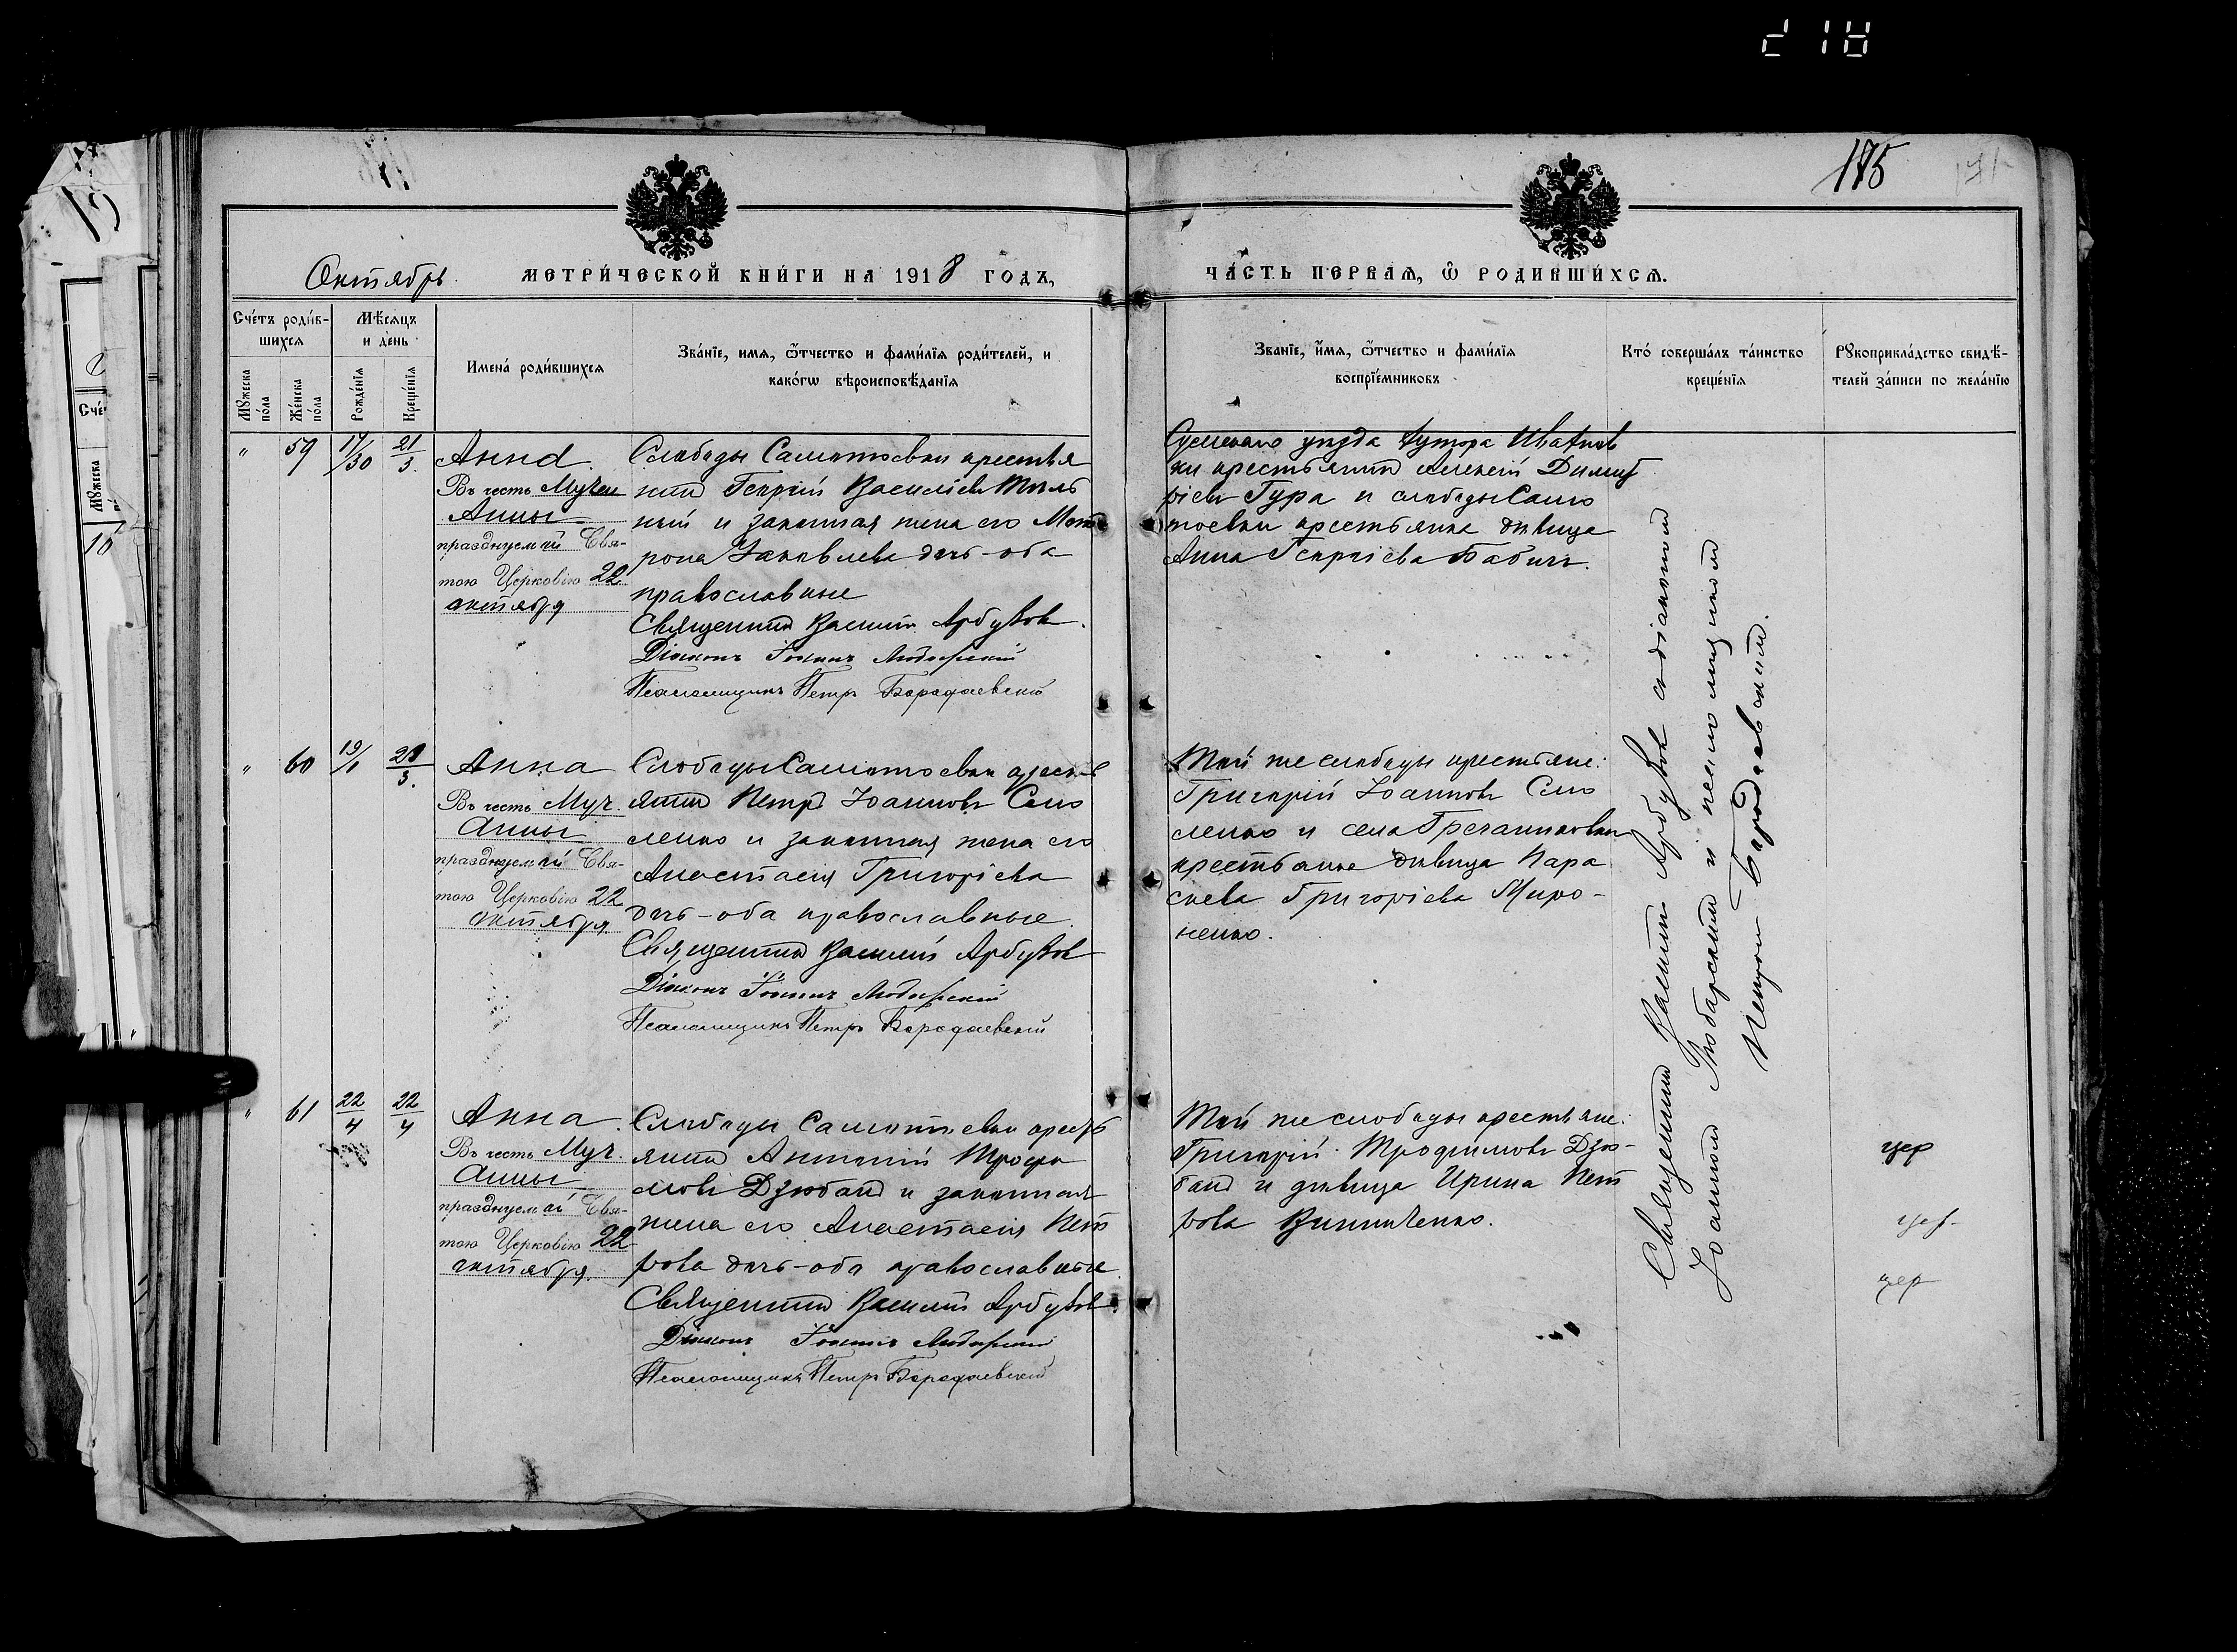 218
175
Октябрь
МЕТРИЧЕСКОЙ КНИГИ НА 1918 ГОДЪ,
ЧАСТЬ ПЕРВАЯ, Ѿ РОДИВШИХСЯ.
Счетъ родив-
шихся
Мѣсяцъ
и день
Мужеска
пола
Женска
пола
Рожденія
Крещенія
Имена родившихся
Званіе, имя, ѿтчество и фамилія родителей, и
какогѡ вѣроисповѣданія
Званіе, имя, ѿтчество и фамилія
воспріемниковъ
Кто совершалъ таинство
крещенія
Рукоприкладство свидѣ-
телей записи по желанію
" 59 17/30 21/3.
Анна.
Въ честь Мучен
Анны
празднуемой Свя-
тою Церковію 22
октября
Слободы Самотоевки крестья
нинъ Георгій Василіевъ
и законная жена его Мат
рона Іаковлева дочь - оба
православные
Священникъ Василій Арбузовъ.
Діаконъ Іоаннъ Любарскій
Псаломщикъ Петръ Бородаевскій
Сумскаго уѣзда хутора
ки крестьянинъ Алексій Димит
ріевъ Гура и слободы Само
тоевки крестьянка дѣвица
Анна Георгіева Бабичъ.
" 60 19/1 21/3.
Анна
Въ честь Муч.
Анны
празднуемой Свя-
тою Церковію 22
октября
Слободы Самотоевки кресть
янинъ Петръ Іоанновъ Сло
ленко и законная жена его
Анастасія Григоріева
дочь - оба православные.
Священникъ Василій Арбузовъ
Діаконъ Іоаннъ Любарскій
Псаломщикъ Петръ Бородаевскій
Той же слободы крестьяне:
Григорій Іоанновъ Сло
ленко и села Гречаниковки
крестьянка дѣвица Пара
скева Григоріева Миро-
ненко.
" 61 22/4 22/4
Анна.
Въ честь Муч.
Анны
празднуемой Свя-
тою Церковію 22
октября.
Слободы Самотоевки кресть
янинъ Антоній Трофи
мовъ Дзюбанъ и законная
жена его Анастасія Пет
рова дочь - оба православные.
Священникъ Василій Арбузовъ.
Діаконъ Іоаннъ Любарскій
Псаломщикъ Петръ Бородаевскій
Той же слободы крестьяне:
Григорій Трофимовъ Дзю-
банъ и дѣвица Ирина Пет
рова Винниченко.
Священникъ Василій Арбузовъ съ діакономъ
Іоанномъ Любарскимъ и псаломщикомъ
Петромъ Бородаевскимъ.